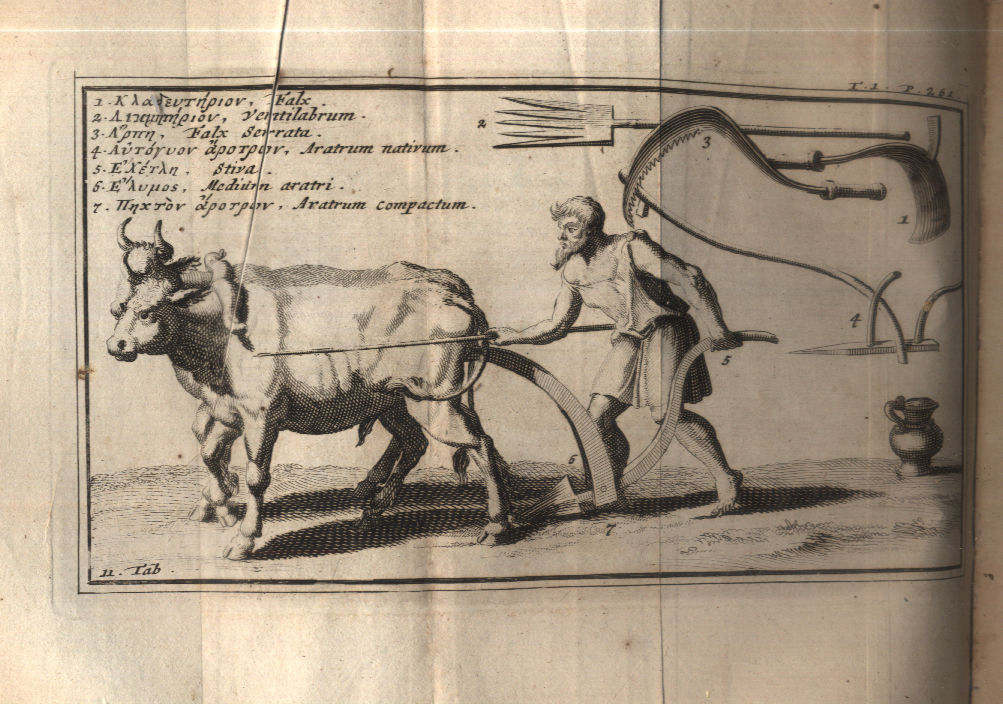 T. 1. P. 261
1. Κλαδευτήριον, Falx.
2. Λικμητήριον, Ventilabrum.
3. Α῞ρπη, Falx Serrata.
4. Αὐτόγυον ἄροτρον, Aratrum nativum.
5. Ε᾿χέτλη, Stiva.
6. Ε῎λυμος, Medium aratri.
7. Πηκτὸν ἄροτρον, Aratrum compactum.
2
3
1
4
5
6
7
11. Tab.